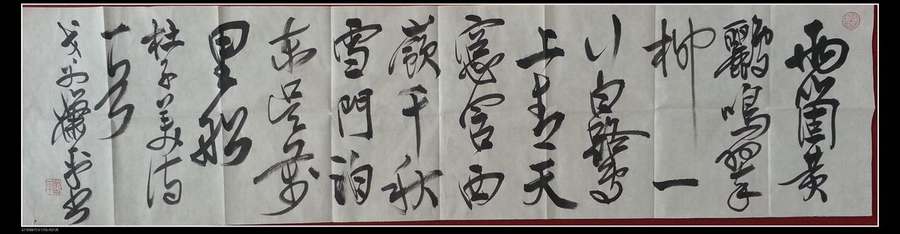 兩箇黃
鸝鳴翠
柳一
行白鷺
上青天
窓含西
嶺千秋
雪門泊
東吳萬
里船
杜子美詩
一首
書